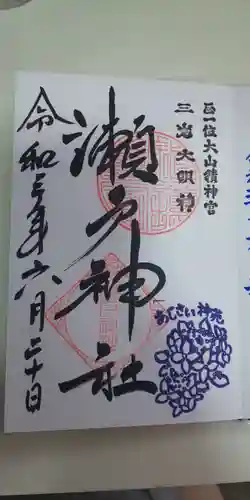 正一位大山積神宮
三嶌大明神
瀬戸神社
令和三年六月二十日
あじさい神苑